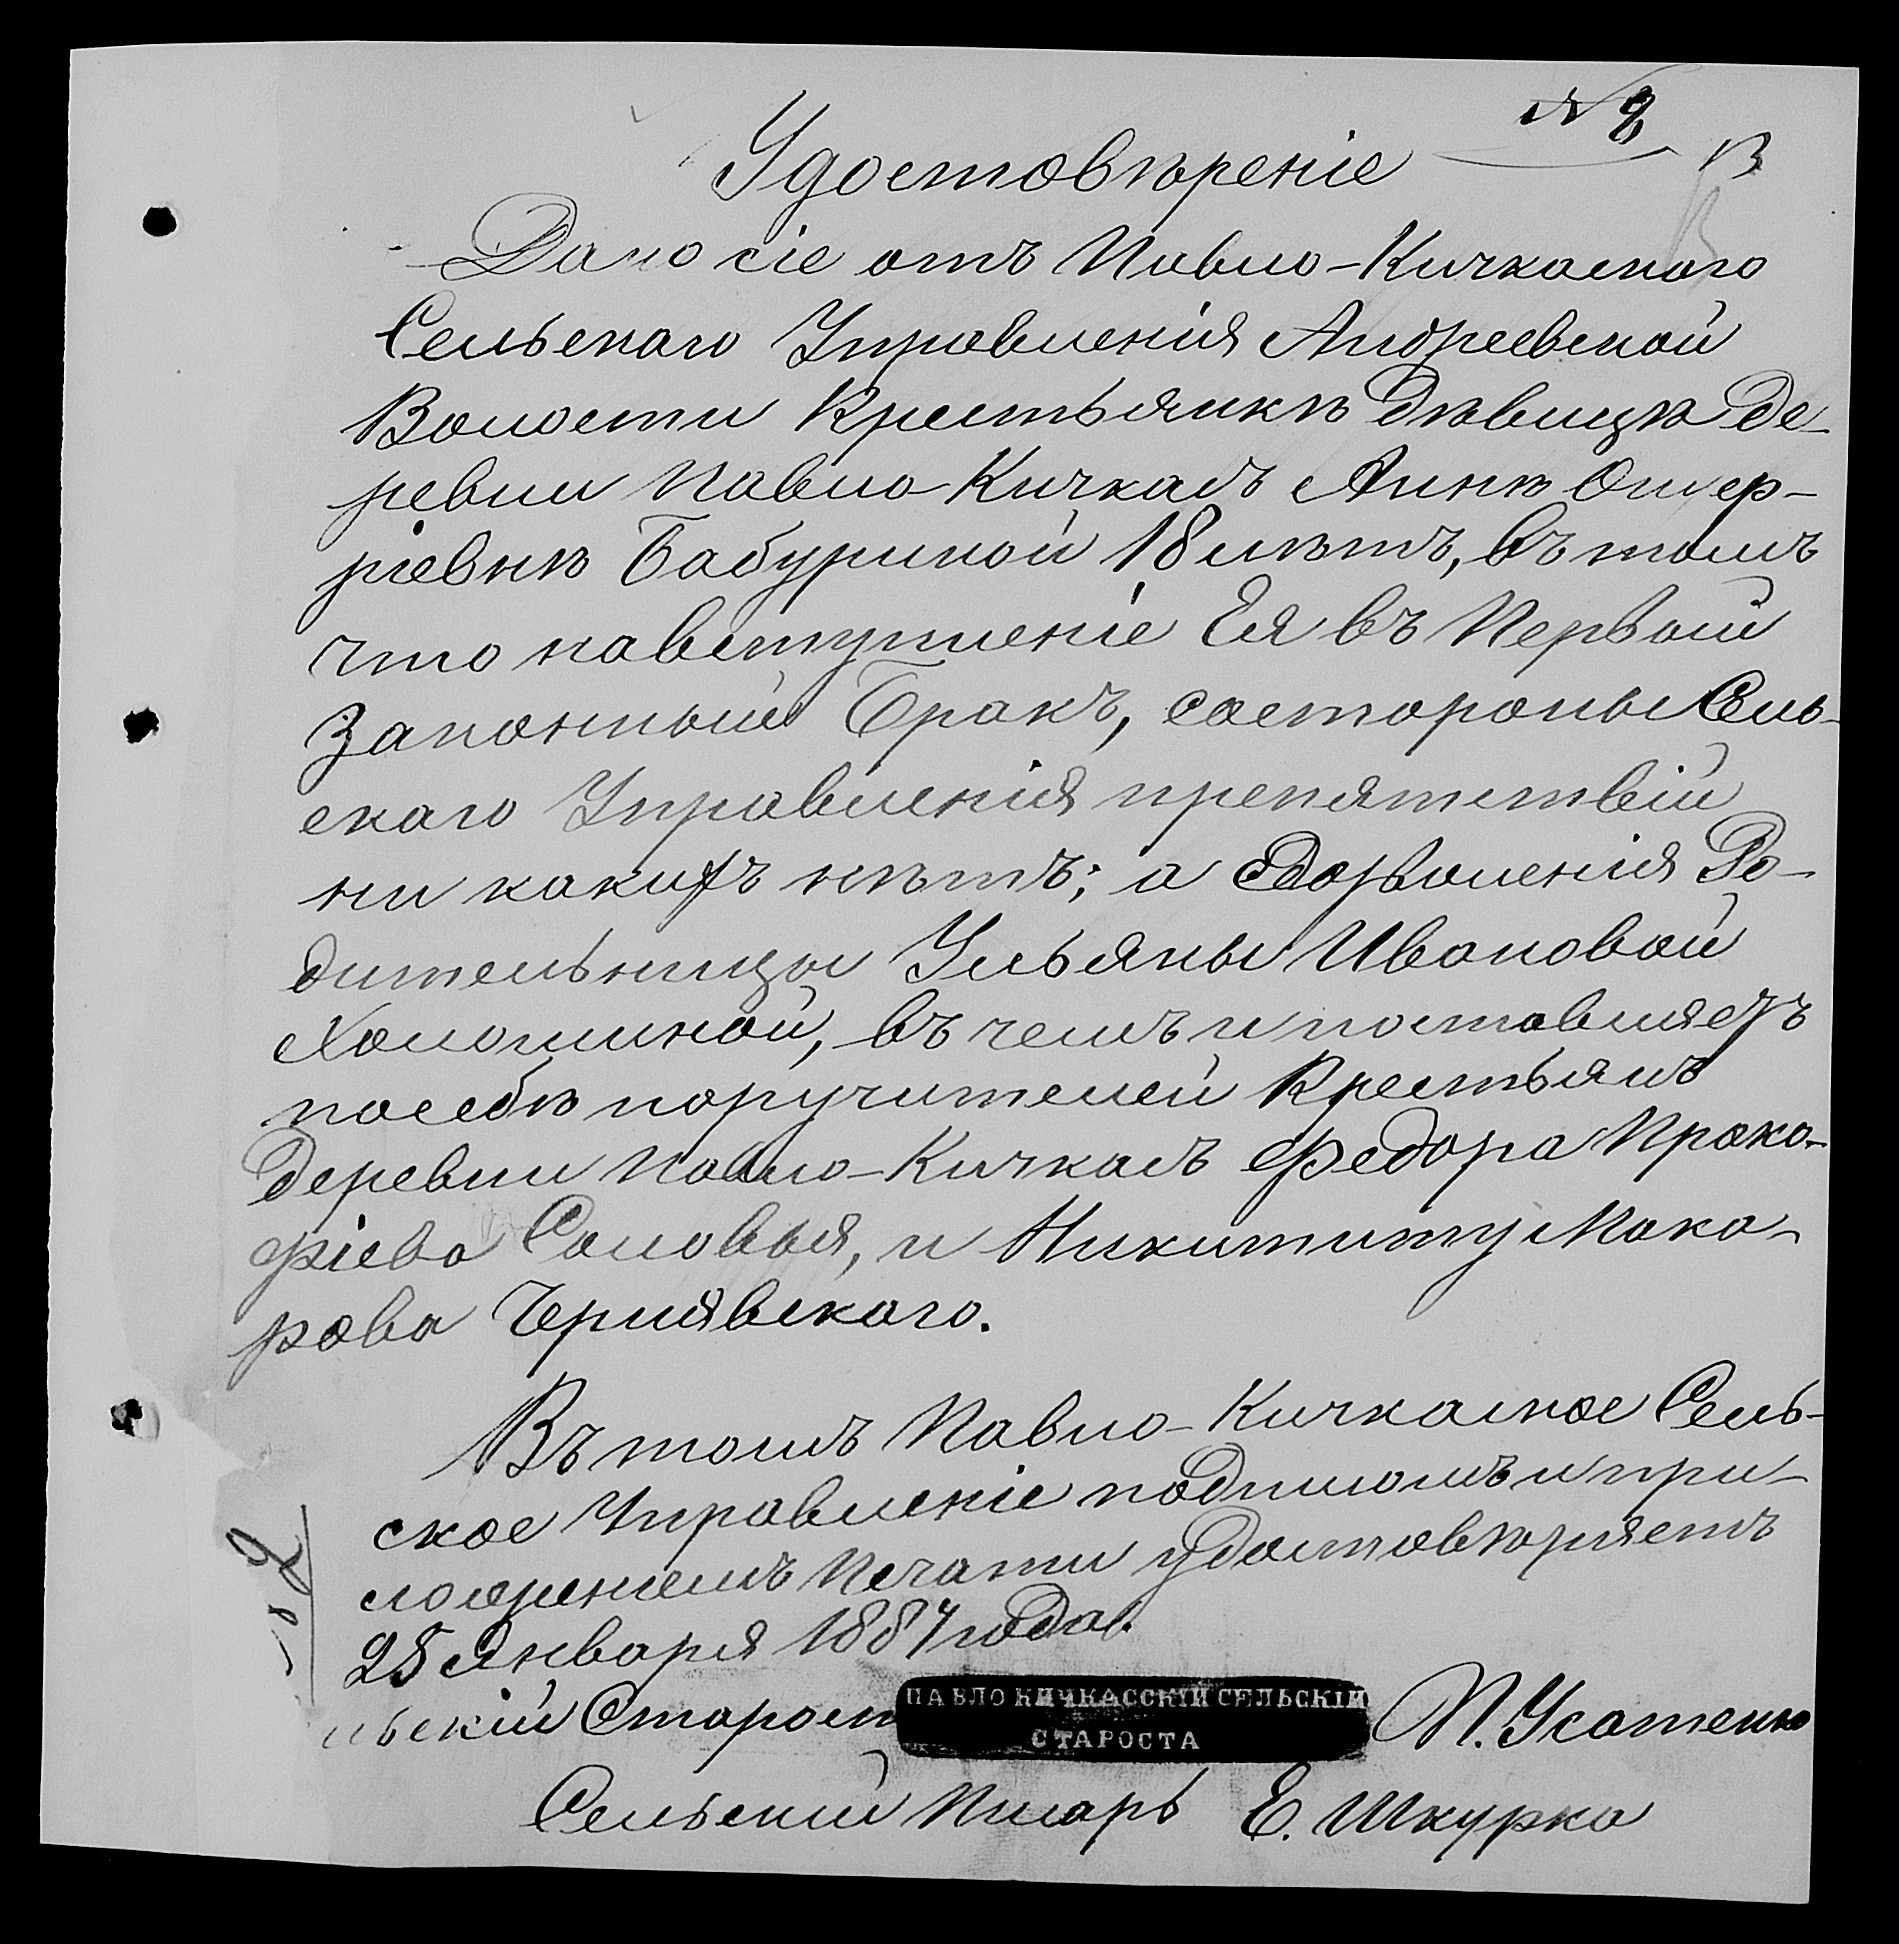 № 2
13
Удостовѣреніе
Дано сіе отъ Павло-Кичкаскаго
Сельскаго Управленія Андреевской
Волости Крестьянкѣ Дѣвицѣ де-
ревни Павло-Кичкасъ Аннѣ
Бабуриной 18 лѣтъ, въ томъ
что навступленіе Ея въ Первый
Законный Бракъ, состороны Сель-
скаго Управленія препятствій
ни какихъ нѣтъ; а Дозволенія Ро-
дительницы Ульяны Ивановой
въ чемъ и поставляетъ
посебѣ поручителей Крестьянъ
Деревни Павло-Кичкасъ Федора Проко-
фіева Соловья, и Никититу Мака-
рова Чернявскаго.
Въ томъ Павло-Кичкаское Сель-
ское Управленіе подписомъ и при-
ложеніемъ Печати удостовѣряетъ
25 Января 1887 года.
льскій Старост
ПАВЛО КИЧКАССКІЙ СЕЛЬСКІЙ
СТАРОСТА
П. Усатенко
Сельскій Писарь Е. Шкурка